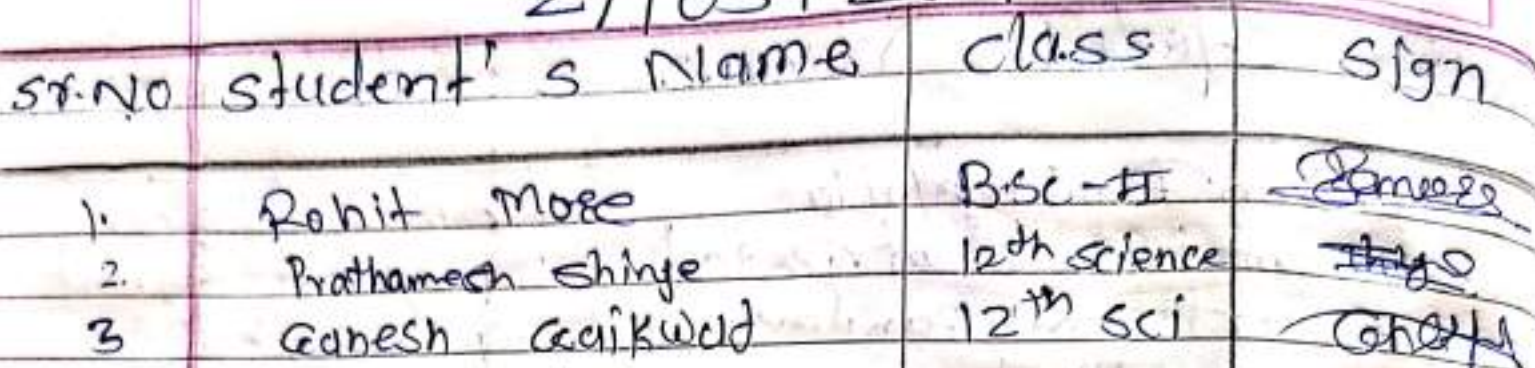 Sr.No Student's Name Class Sign
1. Rohit More B.Sc-II
2. Prathamesh Shinje 12th science
3 Ganesh Gaikwad 12th sci